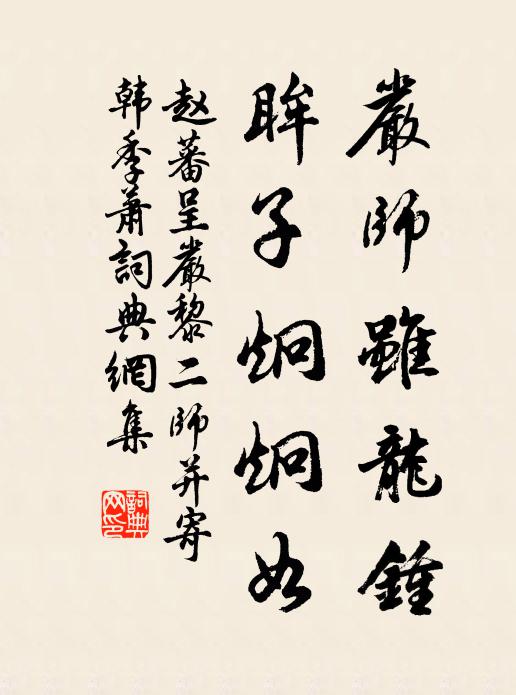 嚴師雖龍鍾
眸子炯炯如
赵蕃呈嚴黎二師并寄
韩季萧詞典網集
詞典网印